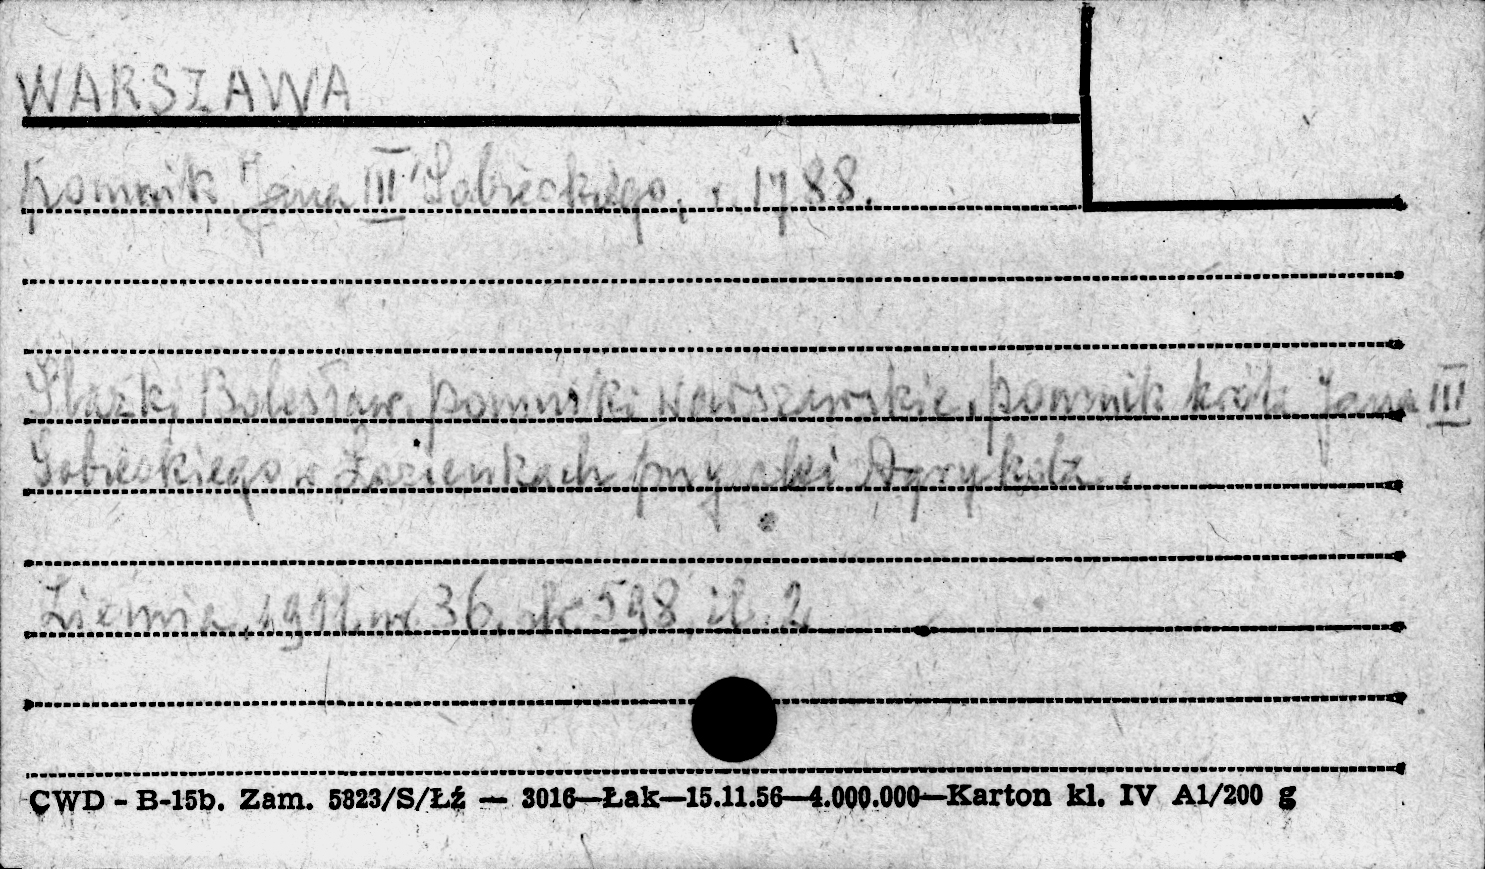 WARSZAWA
Pomnik Jana III Sobieskiego, r. 1788.
Bolesław, Pomniki warszawskie, pomnik króla Jana III
Sobieskiego w Łazienkach przy alei Agrykola.
Ziemia, nr 36, str 598, il. 2
CWD - B-15b. Zam. 5823/S/Łź — 3016—Łak—15.11.56—4.000.000—Karton kl. IV A1/200 g